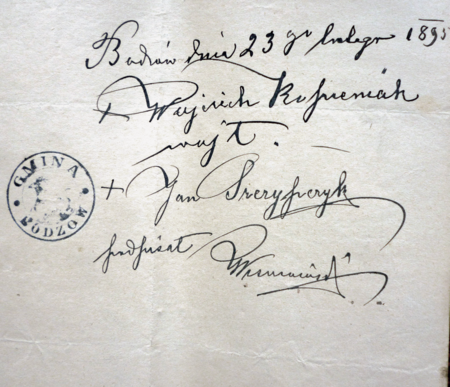 Bodzów dnia 23 go lutego 1895
+ Wojciech Korzeniak
wójt.
GMINA
BODZÓW
+ Jan Szczypczyk
podpisał